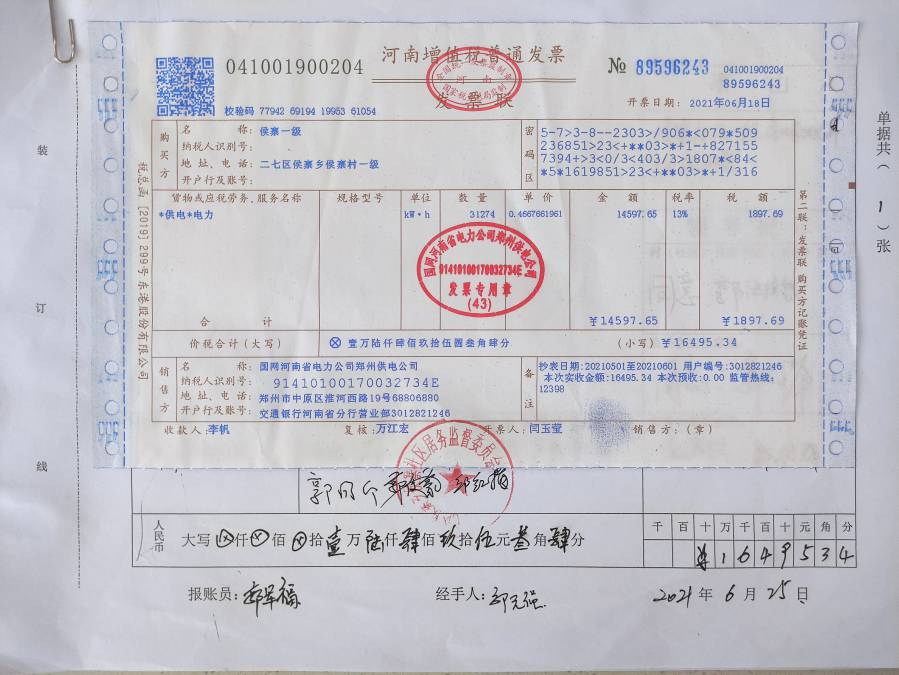 河南增值税普通发票
041001900204
№ 89596243
041001900204
89596243
发票联
校验码 77942 69194 19953 61054
开票日期：2021年06月18日
购买方
名称：侯寨一级
纳税人识别号：
地址、电话：二七区侯寨乡侯寨村一级
开户行及账号：
密码区
5-7>3-8--2303>/906*<079*509
236851>23<+**03>*+1-+827155
7394+>3<0/3<403/3>1807*<84<
*5*1619851>23<+**03>*+1/316
货物或应税劳务、服务名称 规格型号 单位 数量 单价 金额 税率 税额
*供电*电力 kW·h 31274 0.4667661961 14597.65 13% 1897.69
合计 ￥14597.65 ￥1897.69
价税合计（大写） ⊗ 壹万陆仟肆佰玖拾伍圆叁角肆分 （小写）￥16495.34
销售方
名称：国网河南省电力公司郑州供电公司
纳税人识别号：91410100170032734E
地址、电话：郑州市中原区淮河西路19号68806880
开户行及账号：交通银行河南省分行营业部3012821246
备注
抄表日期:20210501至20210601 用户编号:3012821246
本次实收金额:16495.34 本次预收:0.00 监管热线:
12398
收款人：李帆 复核：万江宏 开票人：闫玉莹 销售方：（章）
国网河南省电力公司郑州供电公司
91410100170032734E
发票专用章
(43)
税总函[2019]299号东港股份有限公司
第二联：发票联 购买方记账凭证
单据共（1）张
装
订
线
居务监督委员会
人民币
大写 ⊗仟⊗佰⊗拾壹万陆仟肆佰玖拾伍元叁角肆分
千 百 十 万 千 百 十 元 角 分
¥ 1 6 4 9 5 3 4
报账员：
经手人：
2021年6月25日